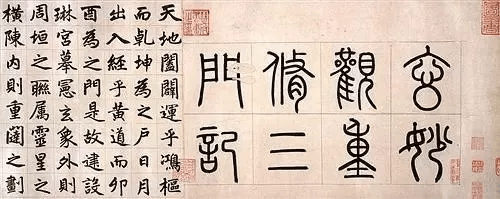 玄妙
觀重
脩三
門記
天地闔闢運乎鴻樞
而乾坤為之戶日月
出入經乎黃道而卯
酉為之門是故建設
琳宮摹憲玄象外則
周垣之聯屬靈星之
橫陳內則重闥之劃